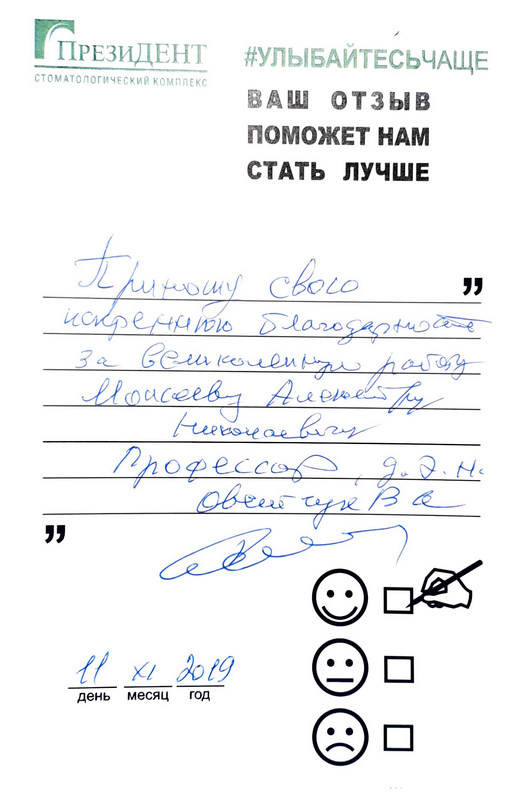 ПрезиДЕНТ
СТОМАТОЛОГИЧЕСКИЙ КОМПЛЕКС
#УЛЫБАЙТЕСЬЧАЩЕ
ВАШ ОТЗЫВ
ПОМОЖЕТ НАМ
СТАТЬ ЛУЧШЕ
Приношу свою
искреннюю благодарность
за великолепную работу
Моисееву
Николаевичу
Профессор, д.э.н.
11 XI 2019
день месяц год